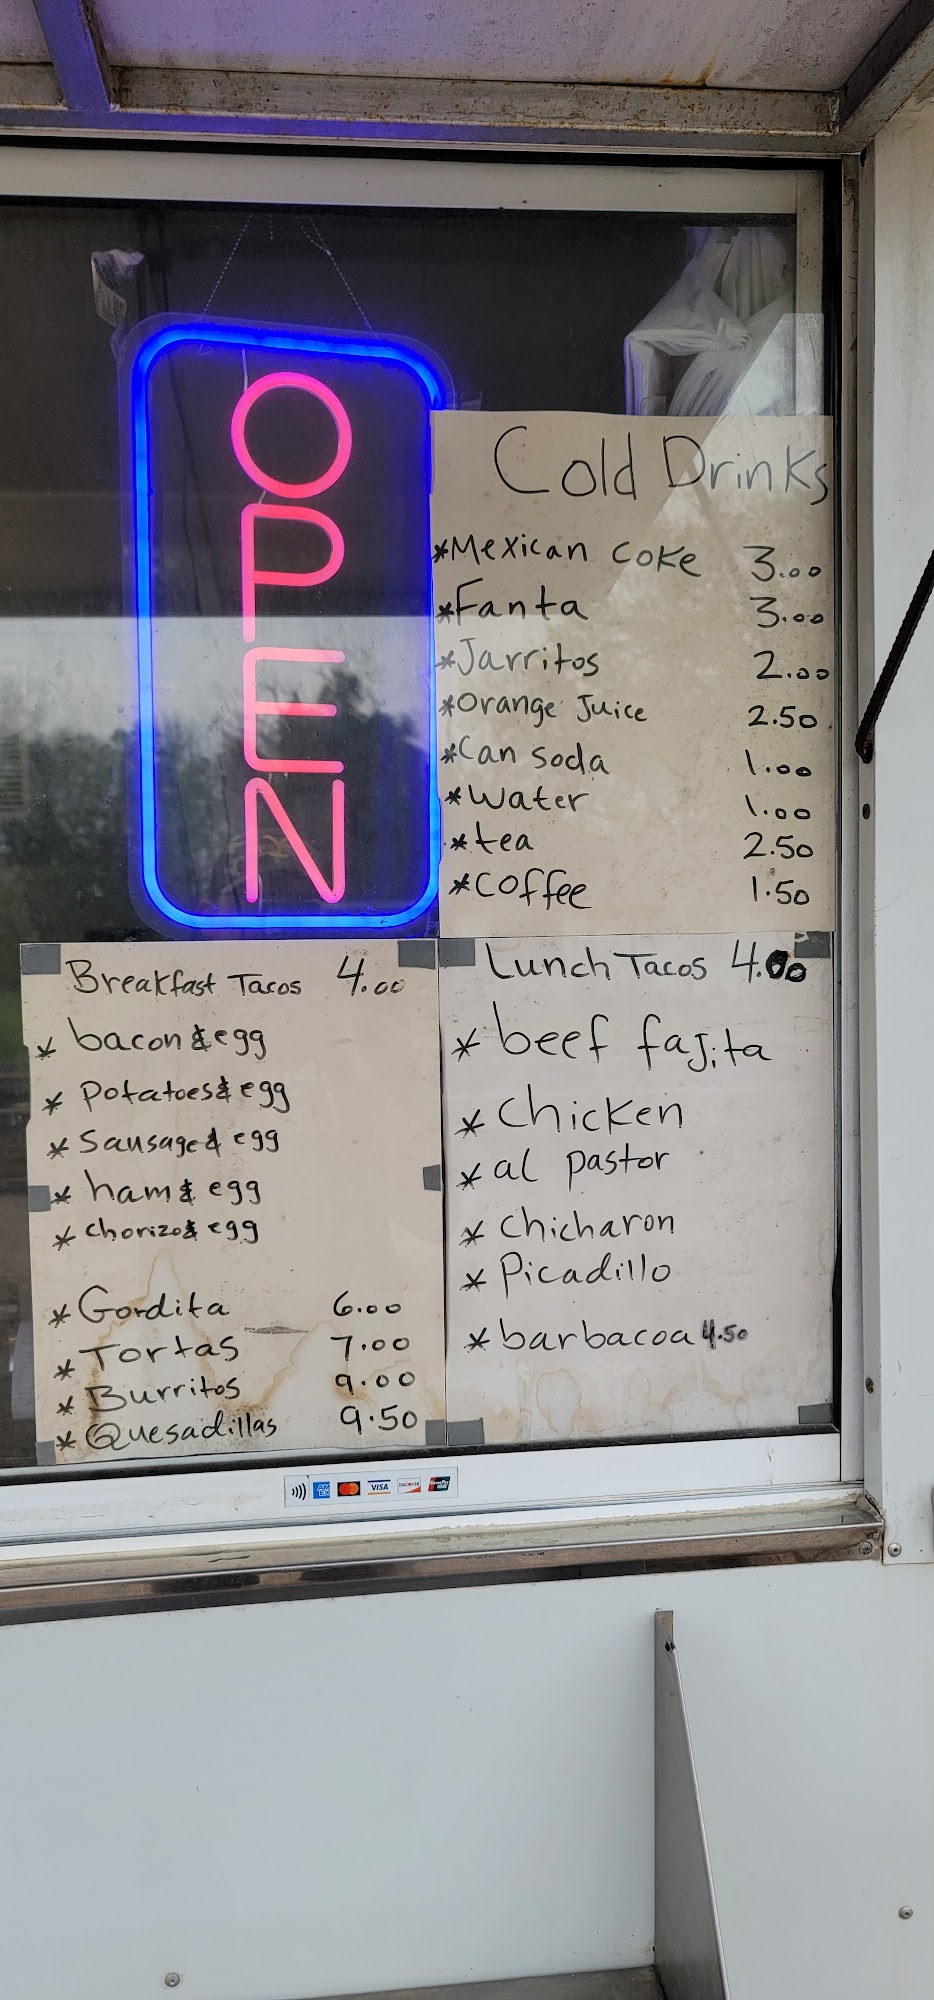 OPEN
Cold Drinks
*Mexican coke 3.00
*Fanta 3.00
*Jarritos 2.00
*Orange Juice 2.50
*Can soda 1.00
*Water 1.00
*tea 2.50
*coffee 1.50
Breakfast Tacos 4.00
* bacon & egg
* potatoes & egg
* Sausage & egg
* ham & egg
* chorizo & egg
* Gordita 6.00
* Tortas 7.00
* Burritos 9.00
* Quesadillas 9.50
Lunch Tacos 4.00
* beef fajita
* Chicken
* al pastor
* Chicharon
* Picadillo
* barbacoa 4.50
AMEX VISA DISCOVER